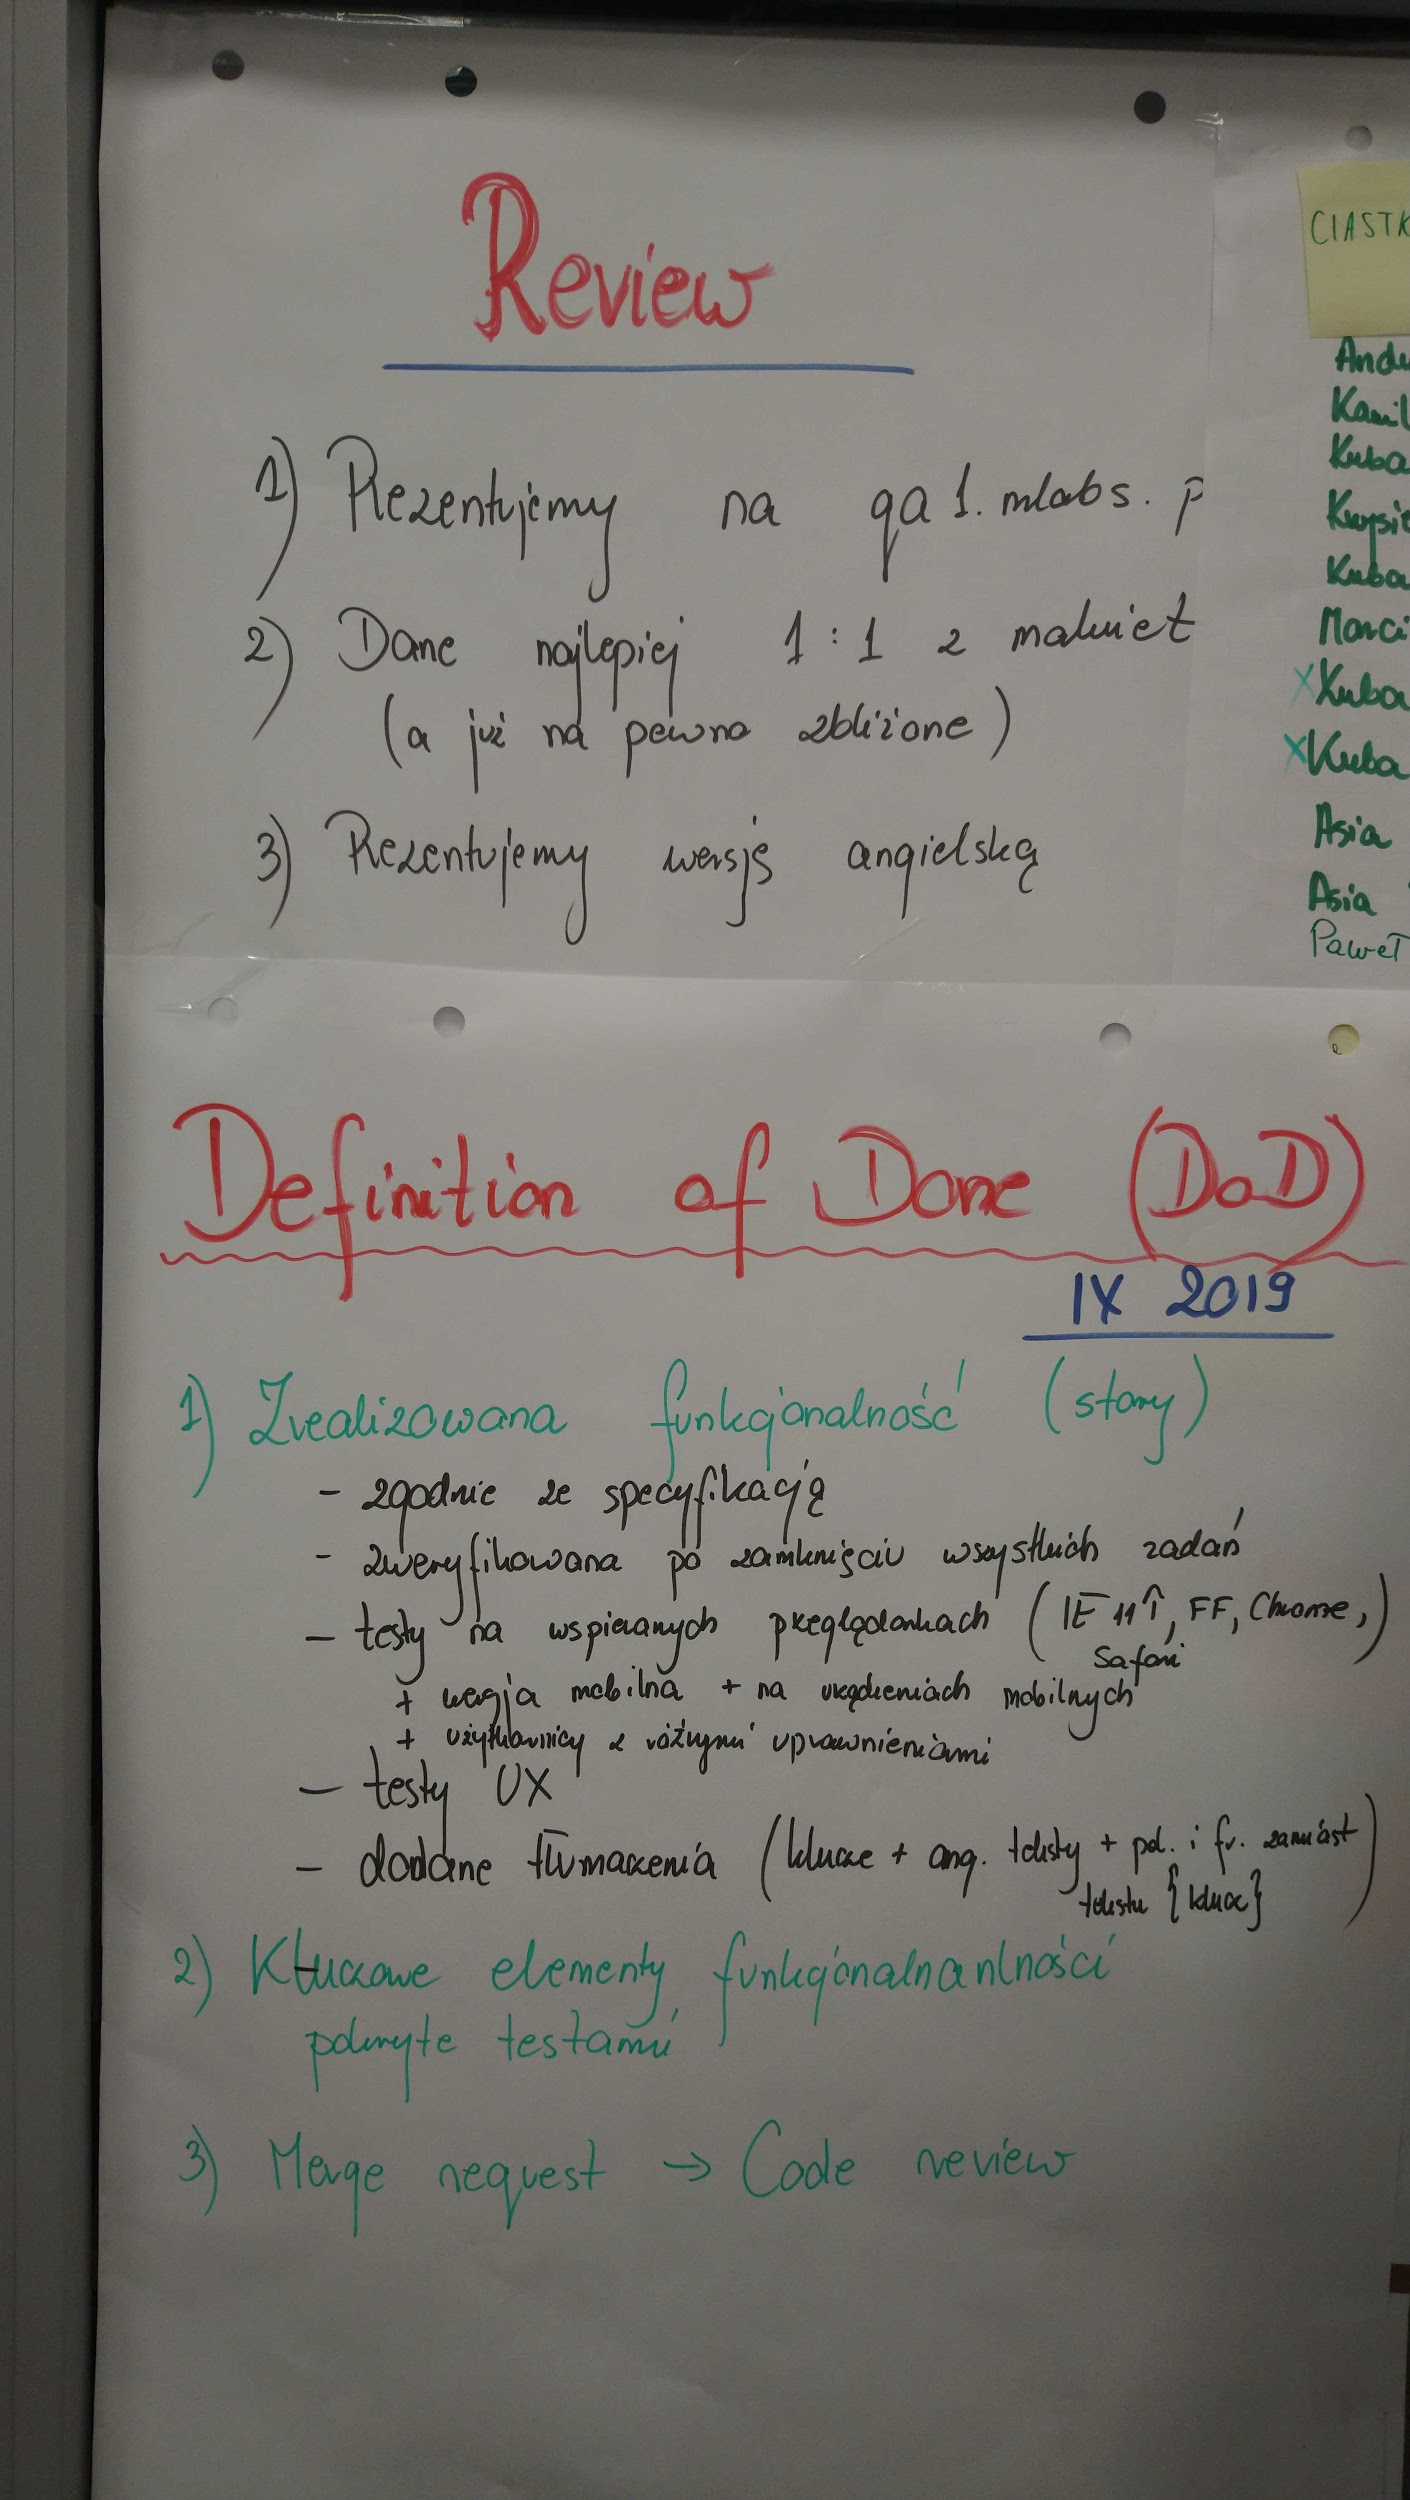 Review
1) Prezentujemy na qa1.mlabs.p
2) Dane najlepiej 1:1 z makiet
(a już na pewno zbliżone)
3) Prezentujemy wersję angielską
CIASTK
Kamil
Kuba
Krysie
Kuba
Marci
x Kuba
x Kuba
Asia
Asia
Paweł
Definition of Done (DoD)
IX 2019
1) Zrealizowana funkcjonalność (story)
- zgodnie ze specyfikacją
- zweryfikowana po zamknięciu wszystkich zadań
- testy na wspieranych przeglądarkach (IE 11↑, FF, Chrome,)
Safari
+ wersja mobilna + na urządzeniach mobilnych
+ użytkownicy z różnymi uprawnieniami
- testy UX
- dodane tłumaczenia (klucze + ang. teksty + pol. i fr. zamiast
tekstu {klucz}
2) Kluczowe elementy funkcjonalnanlności
pokryte testami
3) Merge request → Code review